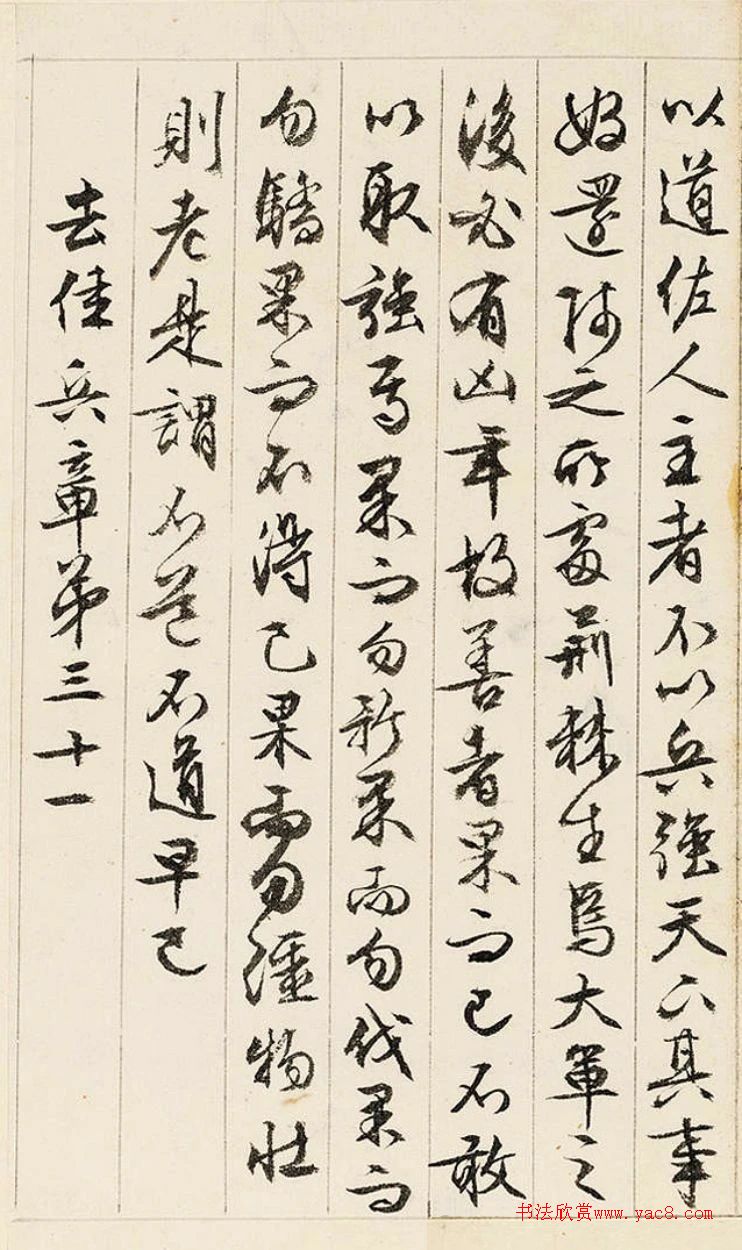 以道佐人主者不以兵強天下其事
好還師之所處荊棘生焉大軍之
後必有凶年故善者果而已不敢
以取強焉果而勿矜果而勿伐果而
勿驕果而不得已果而勿彊物壯
則老是謂不道不道早已
去佳兵章第三十一
书法欣赏www.yac8.com